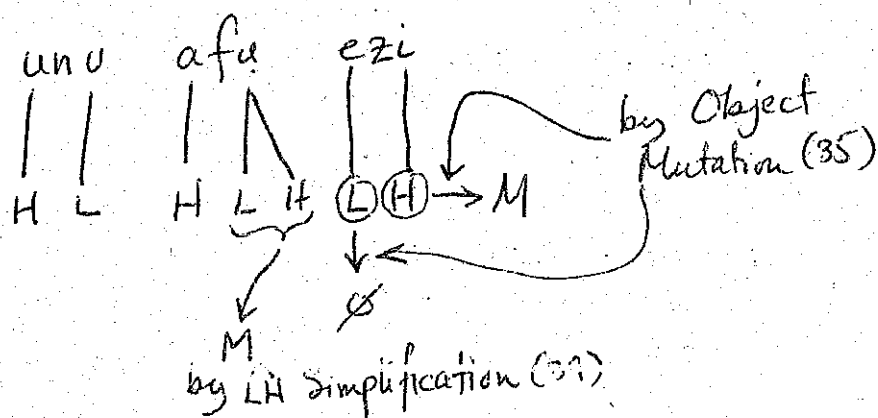 unu afụ ezi
by Object
Mutation (35)
H L H L H L H → M
M ∅
by LH Simplification (31)